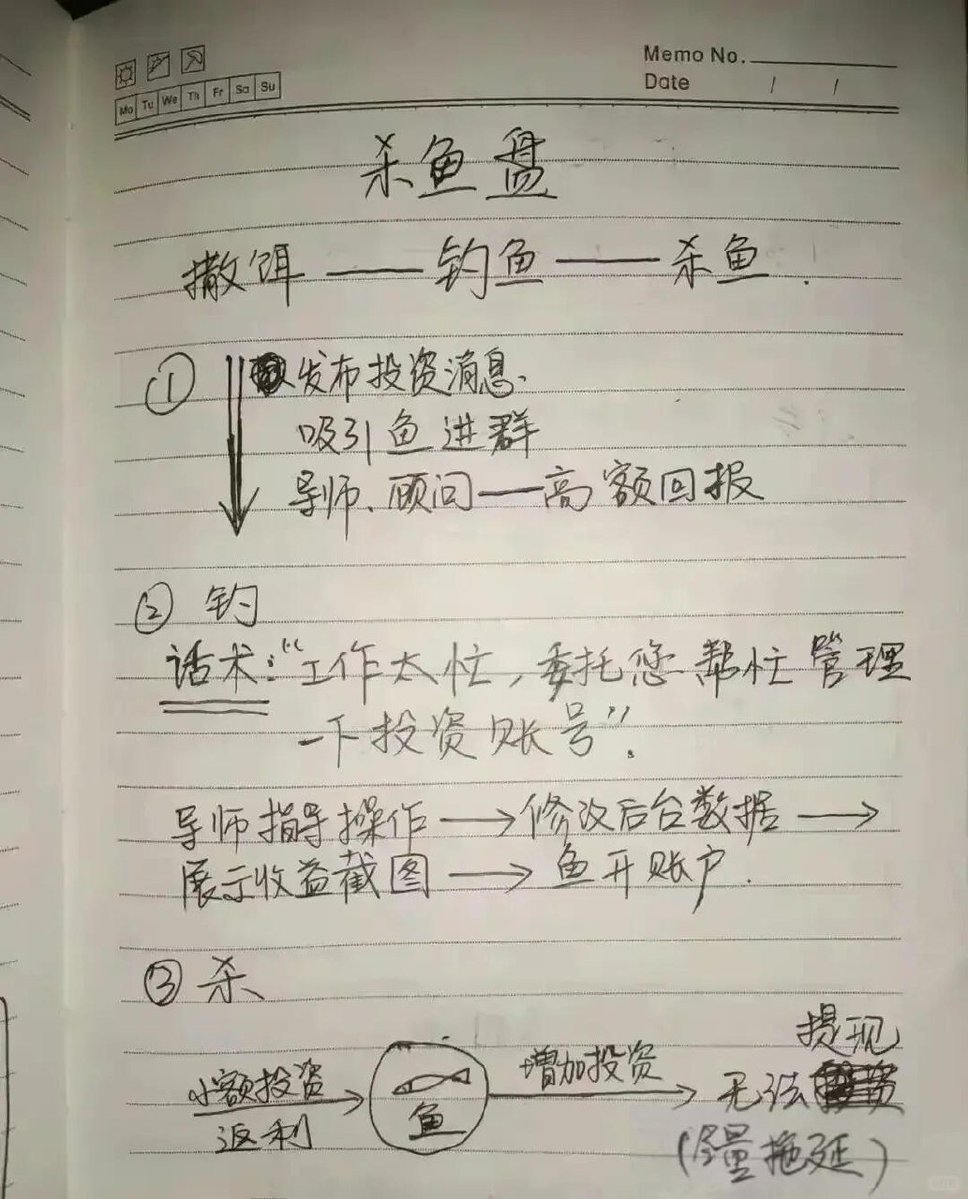 Memo No.
Mo Tu We Th Fr Sa Su
Date / /
杀鱼盘
撒饵——钓鱼——杀鱼.
① 发布投资消息.
吸引鱼进群
导师、顾问—高额回报
② 钓
话术:“工作太忙,委托您帮忙管理
一下投资账号”.
导师指导操作→修改后台数据→
展示收益截图→鱼开账户.
③ 杀
提现
小额投资 增加投资 无法
返利 鱼
(尽量拖延)